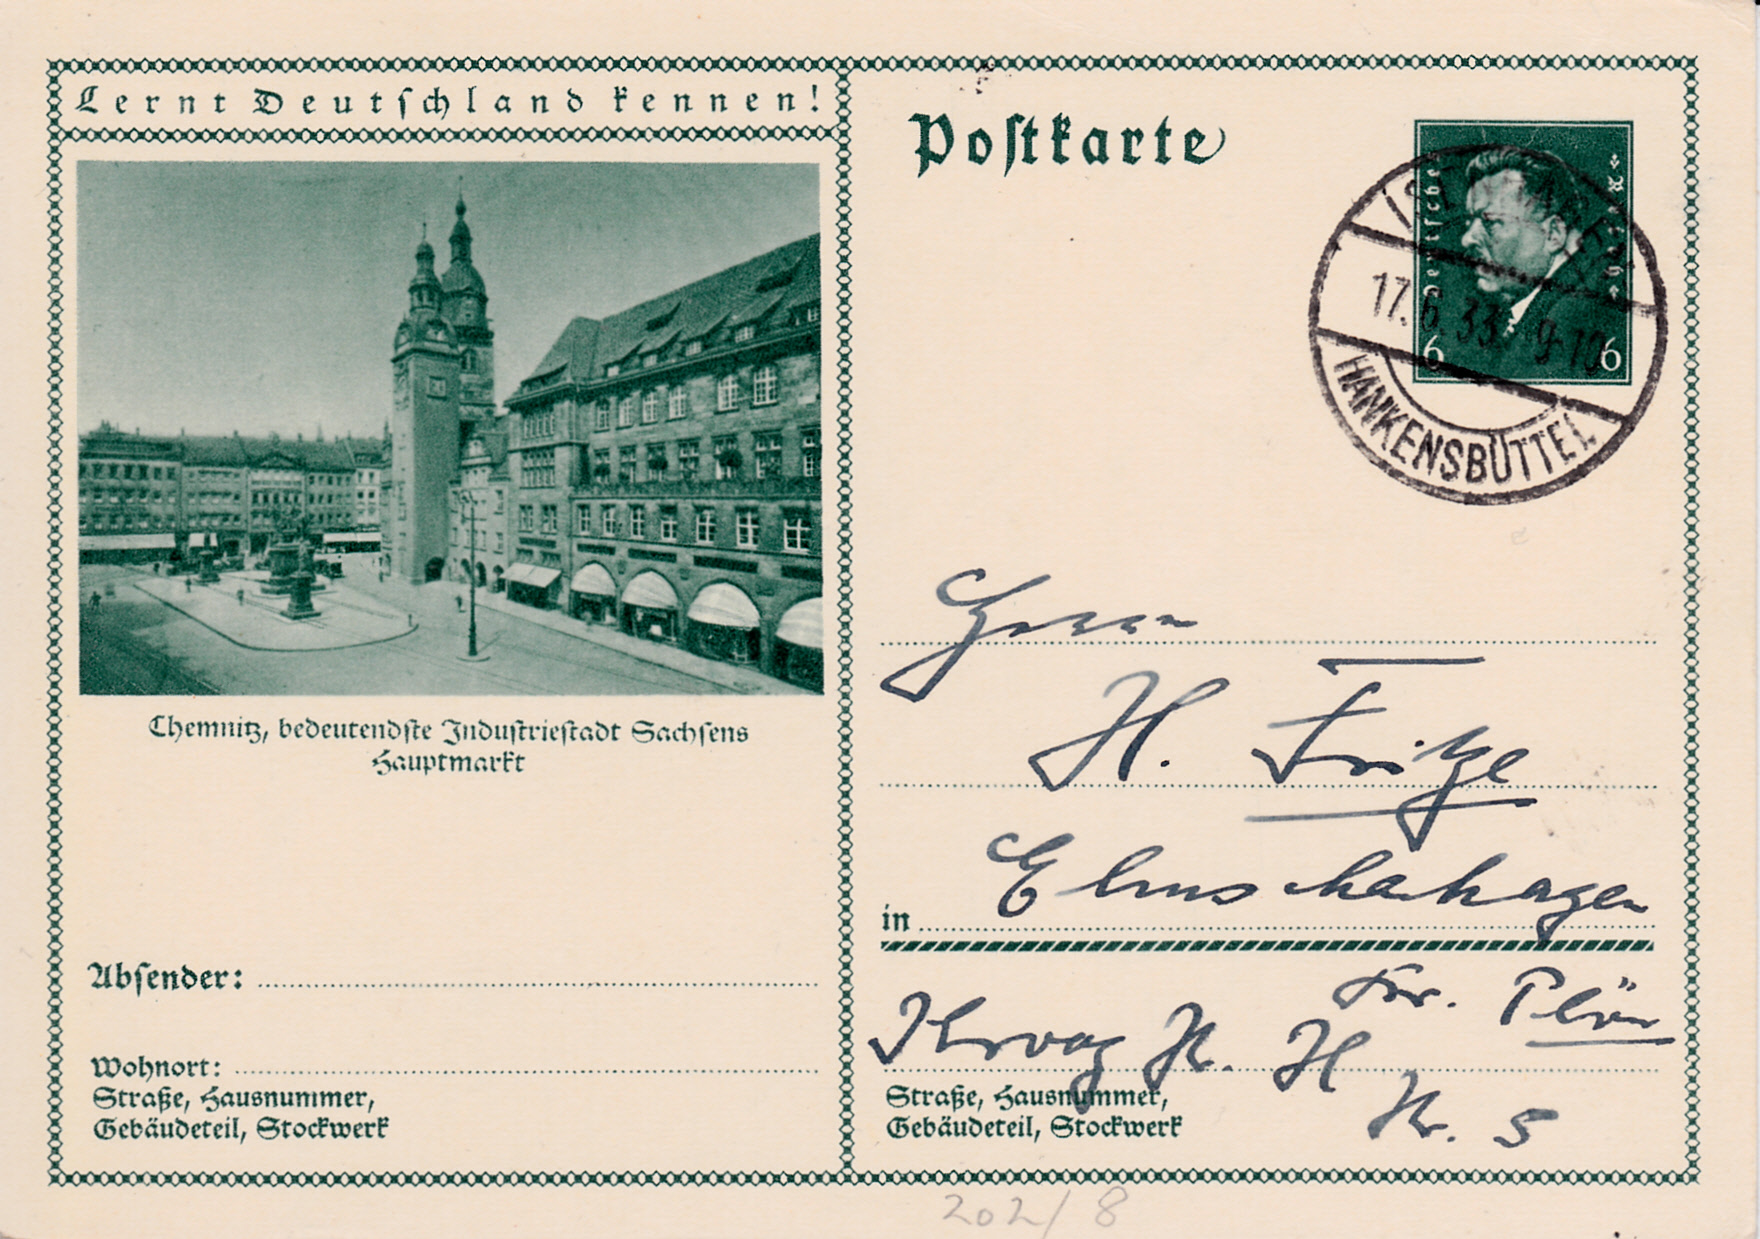 Lernt Deutschland kennen!
Chemnitz, bedeutendste Industriestadt Sachsens
Hauptmarkt
Absender:
Wohnort:
Straße, Hausnummer,
Gebäudeteil, Stockwerk
Postkarte
Deutsches Reich
6 6
17.6.33. 9-10
HANKENSBÜTTEL
Herrn
H. Fritze
in Elmschenhagen
Kr. Plön
H.
Nr. 5
Straße, Hausnummer,
Gebäudeteil, Stockwerk
202/8